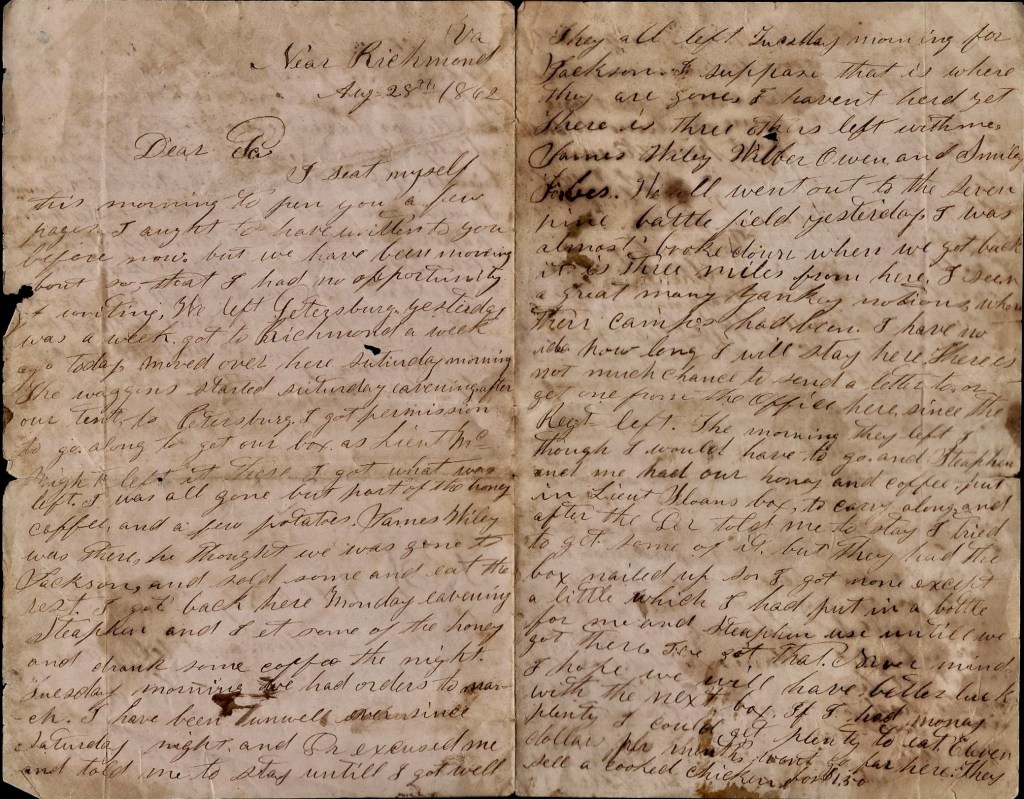 Va
Near Richmond
Aug 28th 1862
Dear Pa
I seat myself
this morning to pen you a few
pages I aught to have written to you
before now. but we have been moving
bout so, that I had no opportunity
of writing. We left Petersburg yesterday
was a week. got to Richmond a week
ago today, moved over here saturday morning
The waggons started saturday eavening after
our tents to Petersburg. I got permission
to go along to get our box. as Lieut Mc
night left it there I got what was
left. I was all gone but part of the honey
coffee, and a few potatoes. James Wiley
was there, he thought we was gone to
Jackson, and sold some and eat the
rest. I got back here Monday eavening
Steaphen and I et some of the honey
and drank some coffee the night.
Tuesday morning we had orders to mar-
ch. I have been unwell ever since
saturday night. and Dr excused me
and told me to stay untill I got well
They all left Tuesday morning for
Jackson. I suppose that is where
they are gone, I havent herd yet
There is three others left with me.
James Wiley Wilber Owen and Smiley
Forbes. We all went out to the seven
pine battle field yesterday, I was
almost broke down when we got back
it is three miles from here. I seen
a great many yankey notions, where
their campes had been. I have no
idea how long I will stay here. There is
not much chance to send a letter to or
get one from the office here, since the
Regt left. The morning they left I
though I would have to go. and Steaphen
and me had our honey and coffee put
in Lieut Sloans box, to carry along, and
after the Dr told me to stay I tried
to get some of it. but they had the
box nailed up so I got none except
a little which I had put in a bottle
for me and Steaphen use untill we
got there I've got that. Never mind
I hope we will have better luck
with the next box. If I had money
plenty I could get plenty to eat. Eleven
dollar per month wont go far here. They
sell a cooked chicken for $1.50